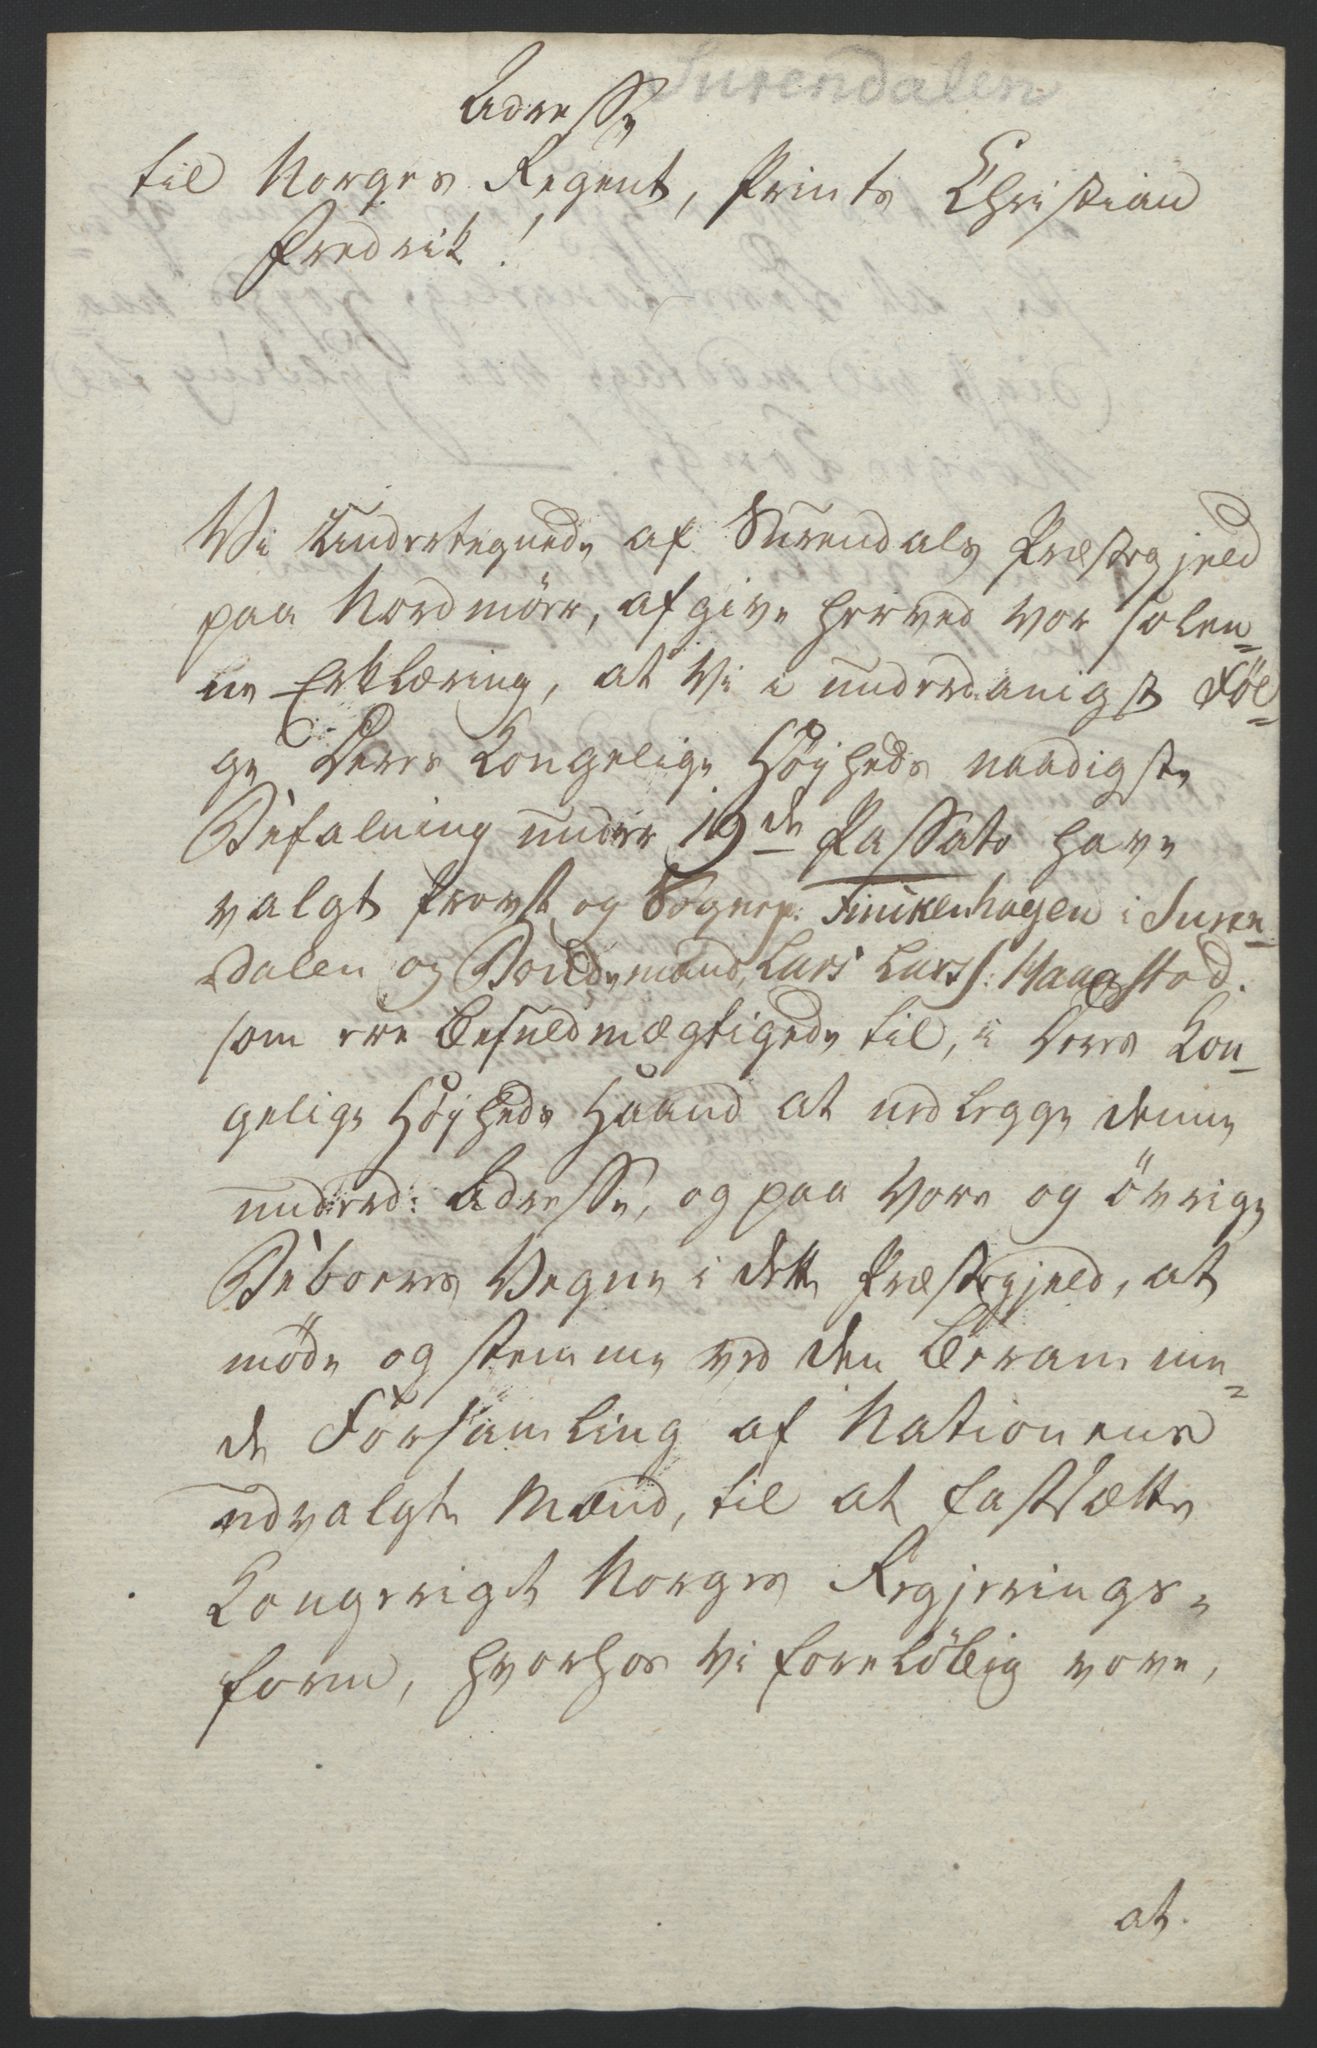 Surendalen
Adresse
til Norges Regent, Prints Christian
Fredrik!
Vi Undertegnede af Surendals Præstegjeld
paa Nordmöre, afgive herved vor solen-
ne Erklæring, at Vi i underdanigst Föl-
ge Deres Kongelige Høyheds naadigste
Befalning under 19de Passato have
valgt Provst og Sognep: Finckenhagen i Suren-
dalen og Bondemand, Lars Larss: Haaestad.
som ere befuldmægtigede til, i Deres Kon-
gelige Høyheds Haand at nedlegge denne
underd: Adresse, og paa Vore og övrige
Beboeres Vegne i dette Præstegjeld, at
møde og stemme ved den beramme-
de Forsamling af Nationens
udvalgte Mænd, til at fastsætte
Kongeriget Norges Regjerings-
form, hvorhos Vi foreløbig vove,
at